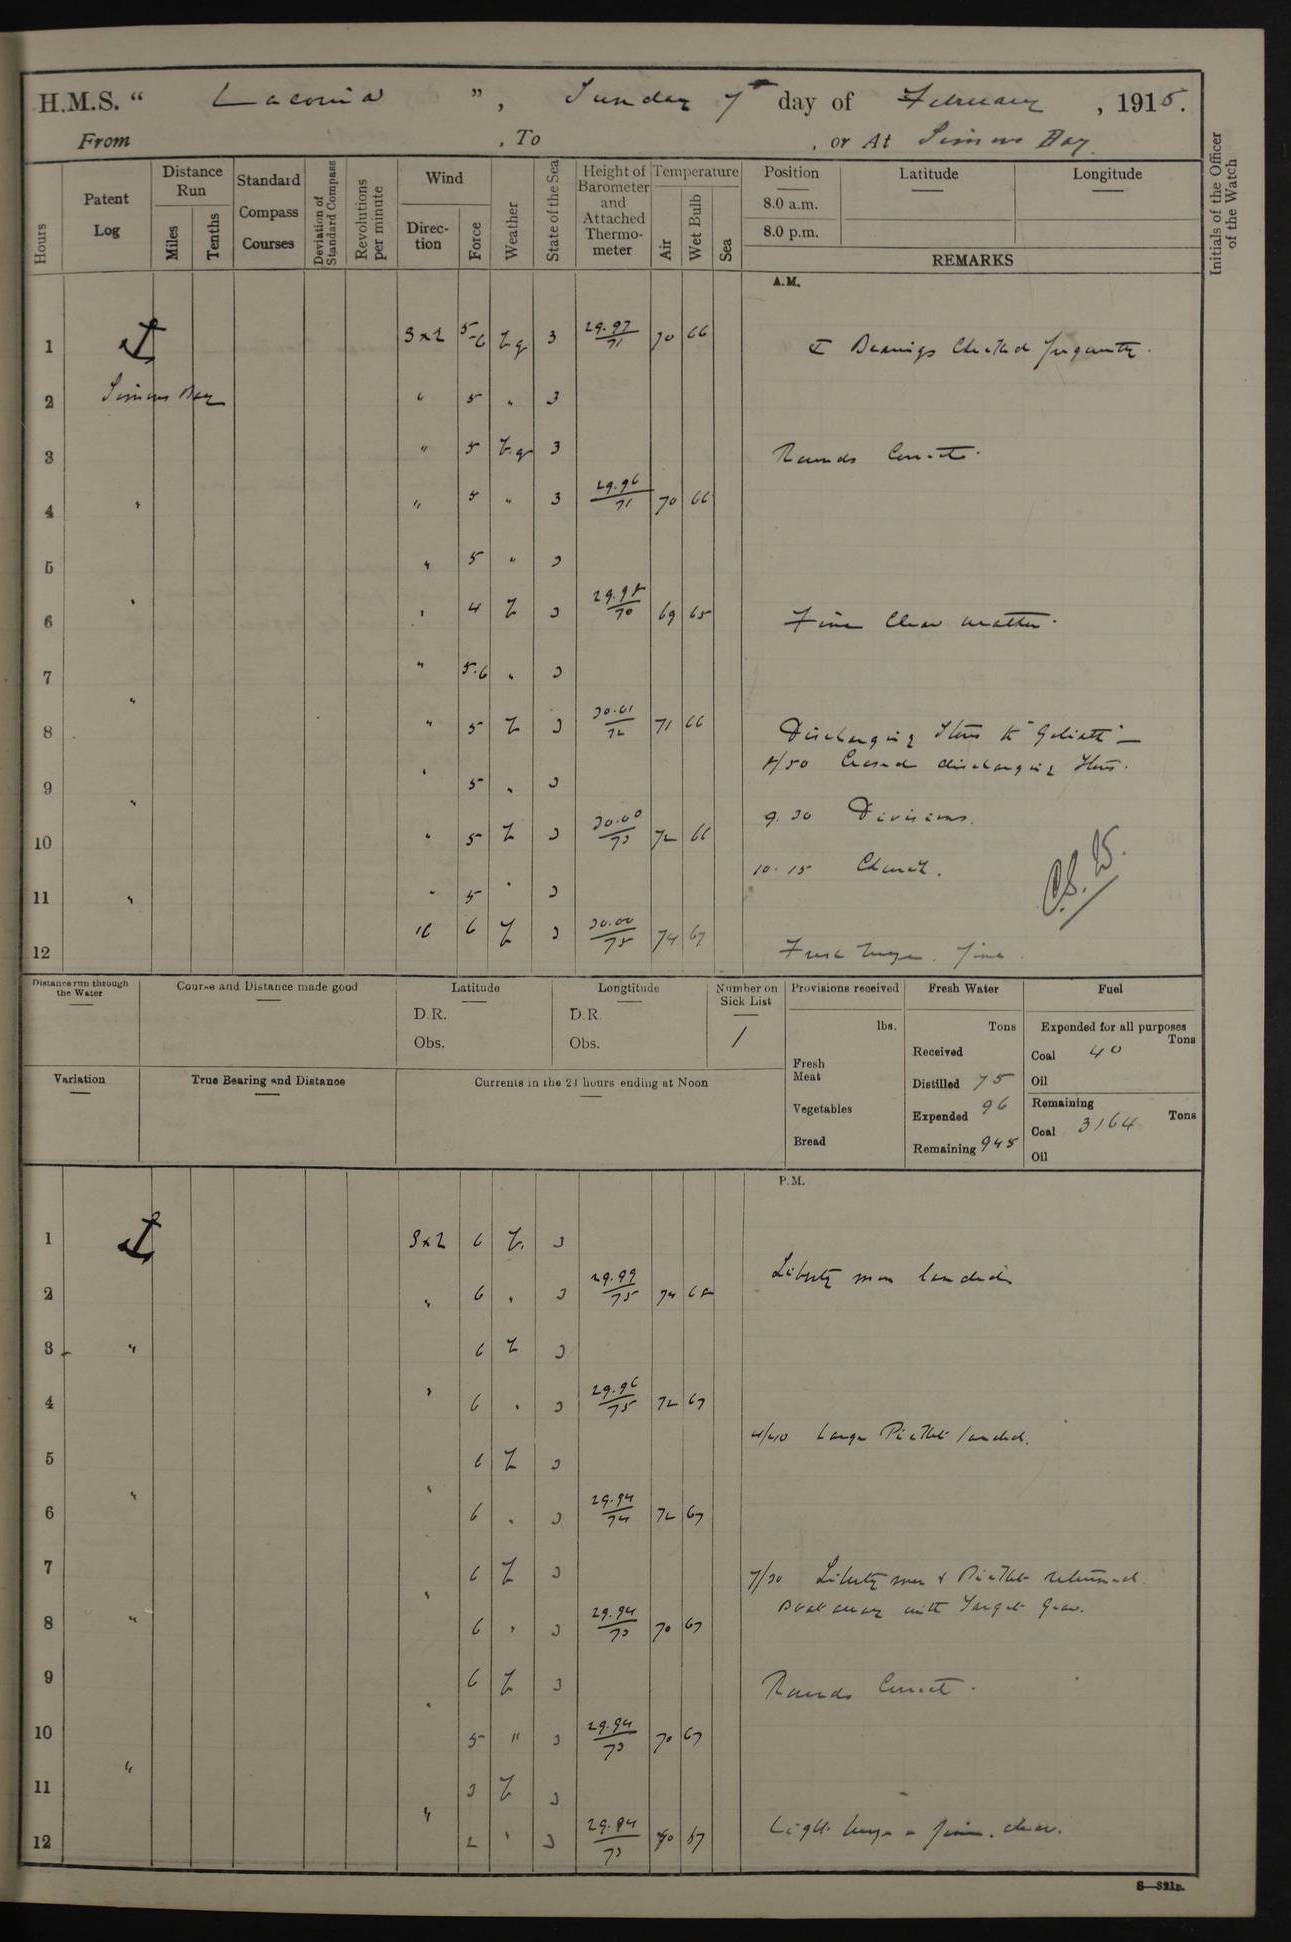 H.M.S. “ Laconia ” , Sunday 7th day of February , 1915.
From , To , or At Simons Bay.
Hours
Patent Log
Distance Run
Miles
Tenths
Standard Compass Courses
Deviation of Standard Compass
Revolutions per minute
Wind
Direction
Force
Weather
State of the Sea
Height of Barometer and Attached Thermometer
Temperature
Air
Wet Bulb
Sea
Position
8.0 a.m.
8.0 p.m.
Latitude
Longitude
REMARKS
Initials of the Officer of the Watch
A.M.
1 5-6 3 29.97/71 70 66 Bearings Checked frequently.
2 Simons Bay " 5 " 3
3 " 5 3 Rounds Correct.
4 " " 5 " 3 29.96/71 70 66
5 " 5 " 3
6 " " 4 3 29.98/70 69 65 Fine Clear weather.
7 " 5.6 " 3
8 " " 5 3 30.01/72 71 66 Discharging Stores to "Goliath" —
8/50 Ceased discharging Stores.
9 " 5 " 3
9.30 Divisions.
10 " " 5 3 30.00/73 72 66
10.15 Church.
11 " " 5 " 3
12 6 3 30.00/75 74 67 Fresh breeze. fine
Distance run through the Water
Course and Distance made good
Latitude
D.R.
Obs.
Longtitude
D.R.
Obs.
Number on Sick List
1
Provisions received
lbs.
Fresh Meat
Vegetables
Bread
Fresh Water
Tons
Received
Distilled 75
Expended 96
Remaining 945
Fuel
Expended for all purposes
Tons
Coal 40
Oil
Remaining
Tons
Coal 3164
Oil
Variation
True Bearing and Distance
Currents in the 24 hours ending at Noon
P.M.
1 6 3
2 " 6 " 3 29.99/75 74 68 Liberty men landed
3 " 6 3
4 " 6 " 3 29.96/75 72 67
4/40 Large Picket landed.
5 6 3
6 " " 6 " 3 29.94/74 72 67
7 6 3 7/30 Liberty men & Picket returned
Boat away with Target Gear.
8 " " 6 " 3 29.94/73 70 67
9 6 3 Rounds Correct.
10 " 5 " 3 29.94/73 70 67
11 " 3 3
12 " 2 " 3 29.84/73 70 67 Light breeze - fine. clear.